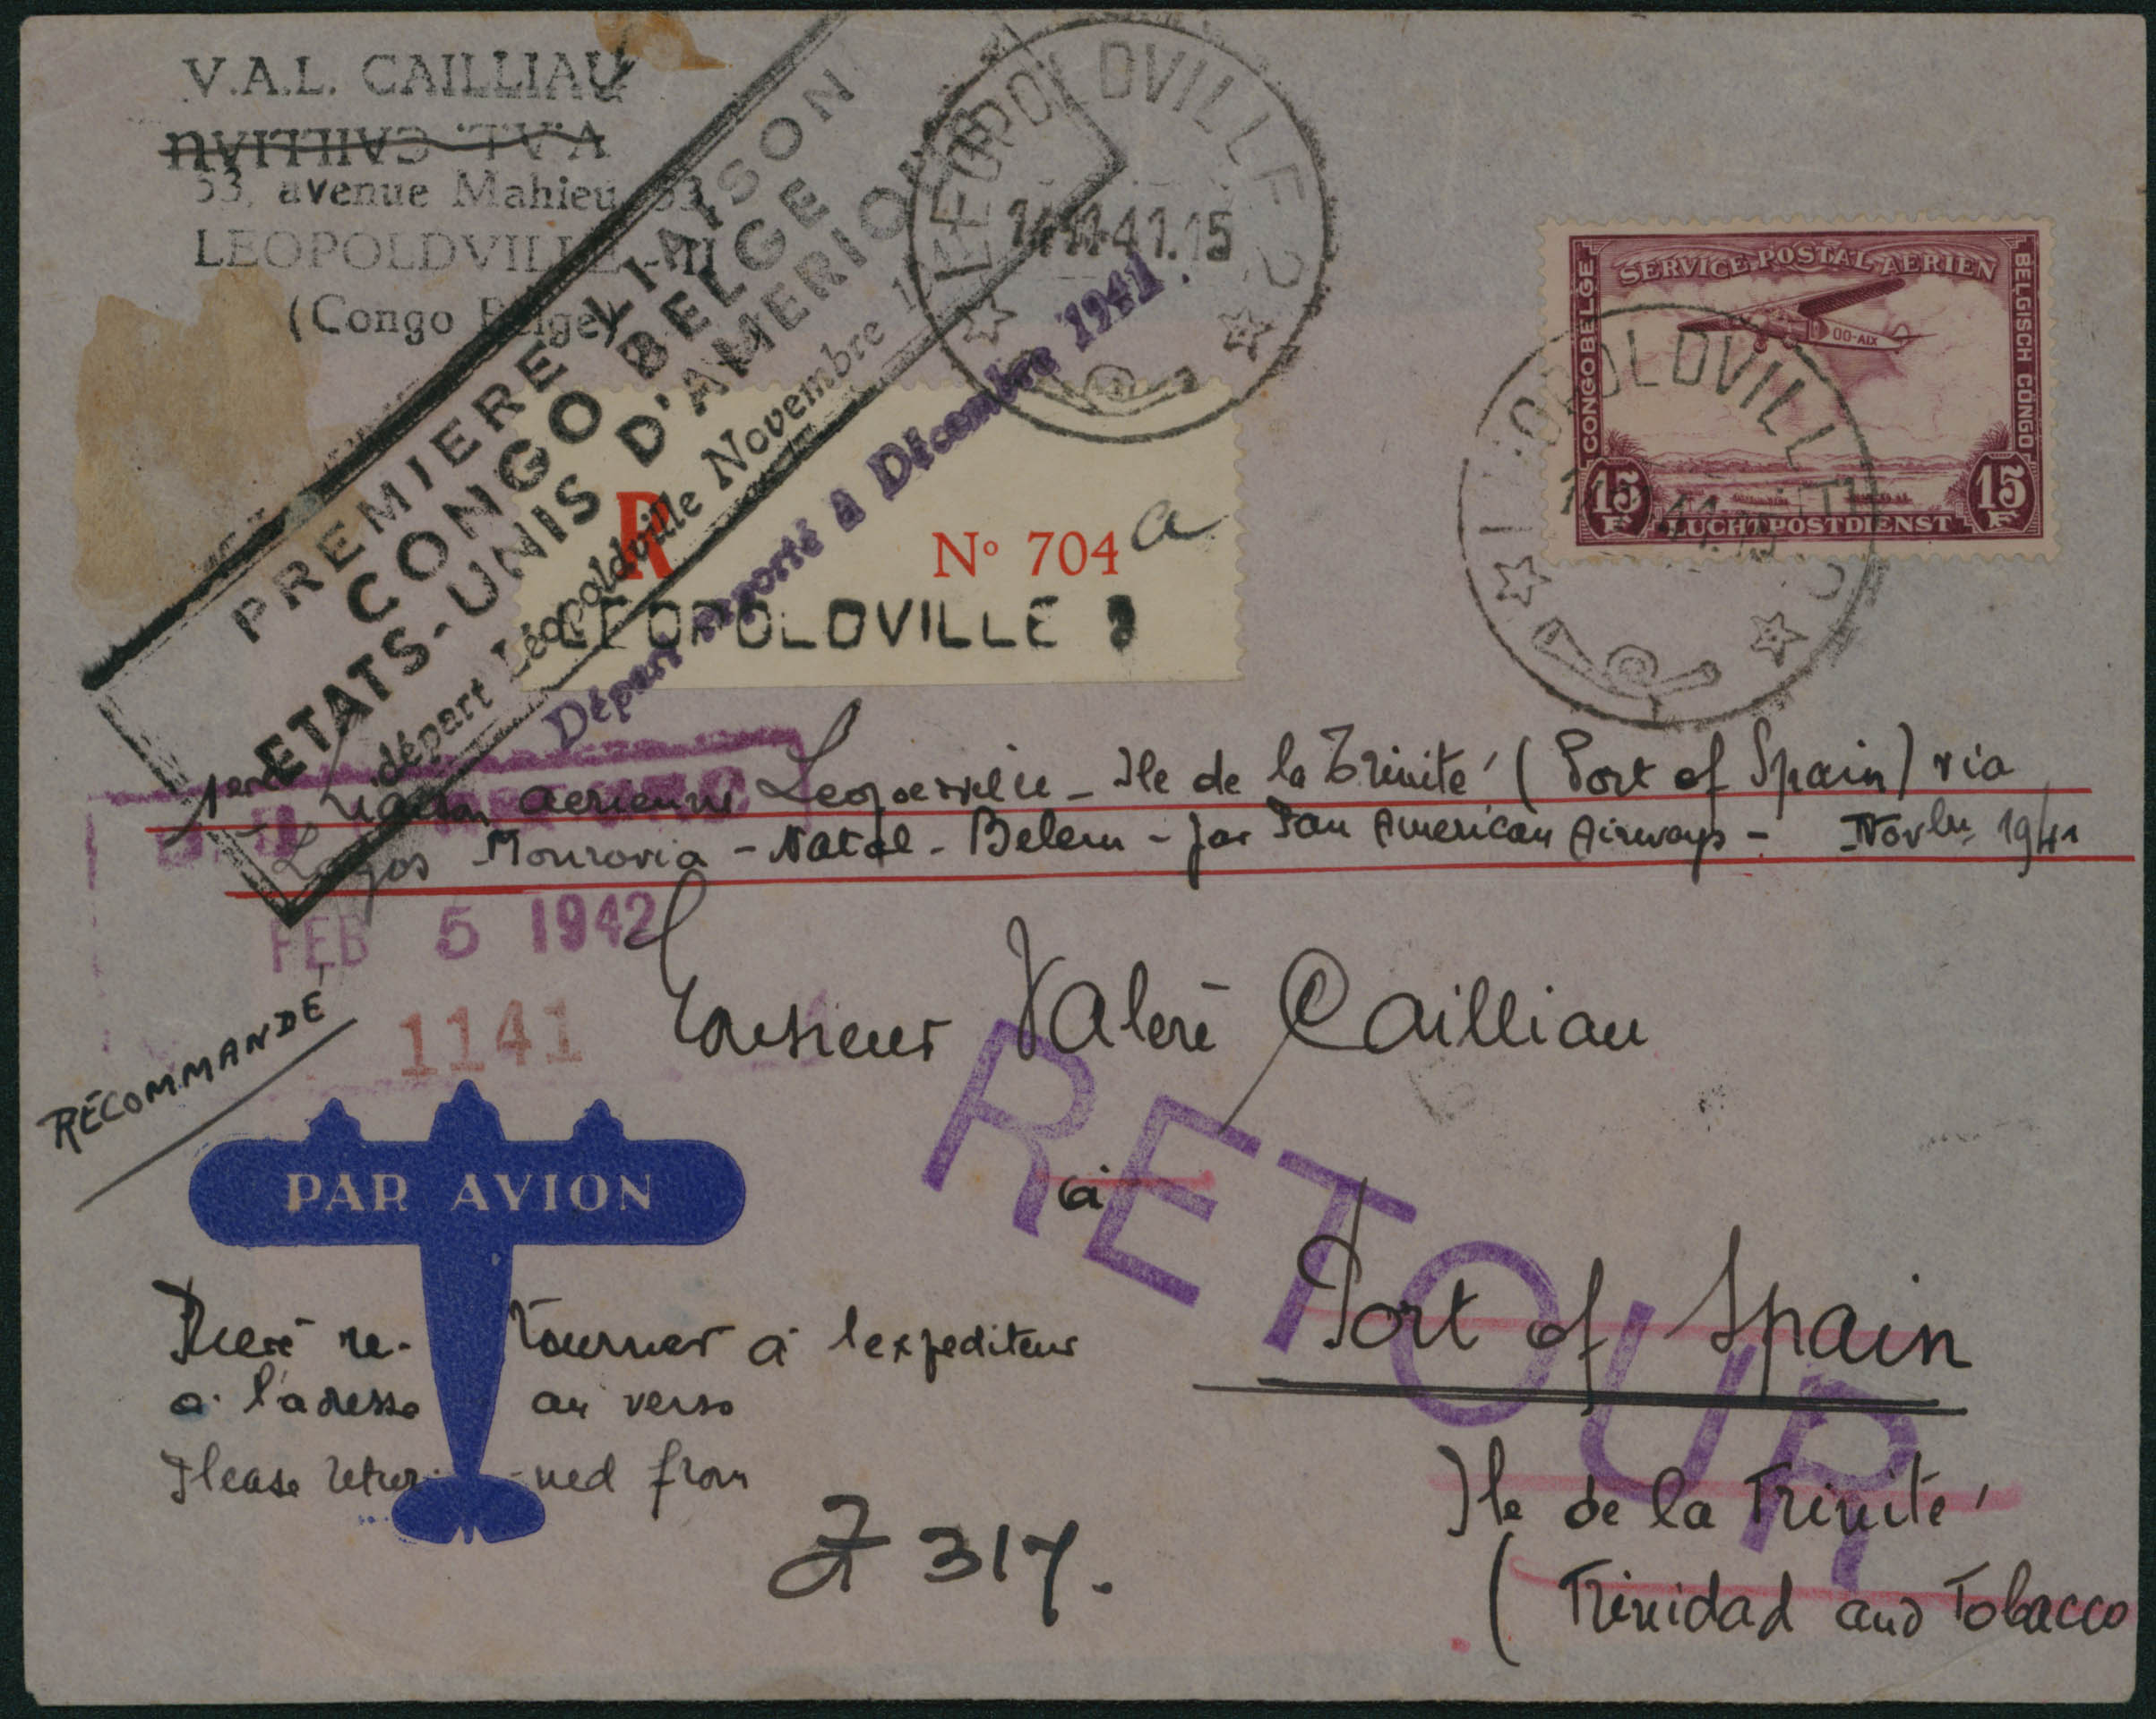 V.A.L. CAILLIAU
V.A.L. CAILLIAU
53, avenue Mahieu, 53
LEOPOLDVILLE - II
(Congo Belge)
PREMIERE LIAISON
CONGO BELGE
ETATS-UNIS D'AMERIQUE
départ Léopoldville Novembre
Départ reporté à Décembre 1941.
LEOPOLDVILLE 2
14-11-41.15
SERVICE POSTAL AERIEN
CONGO BELGE
BELGISCH CONGO
OO-AIX
15 F
15 F
LUCHTPOSTDIENST
LEOPOLDVILLE 2
R
N° 704 a
LEOPOLDVILLE 2
1ere Liaison aerienne Leopoldville - Ile de la Trinité (Port of Spain) via
Lagos Monrovia - Natal - Belem - par Pan American Airways - Novbr 1941
FEB 5 1942
1141
RECOMMANDÉ
Monsieur Valère Cailliau
à
RETOUR
Port of Spain
Ile de la Trinité
(Trinidad and Tobacco
PAR AVION
Prière re-tourner à l'expediteur
a l'adresse au verso
Please retur-ned from
317.